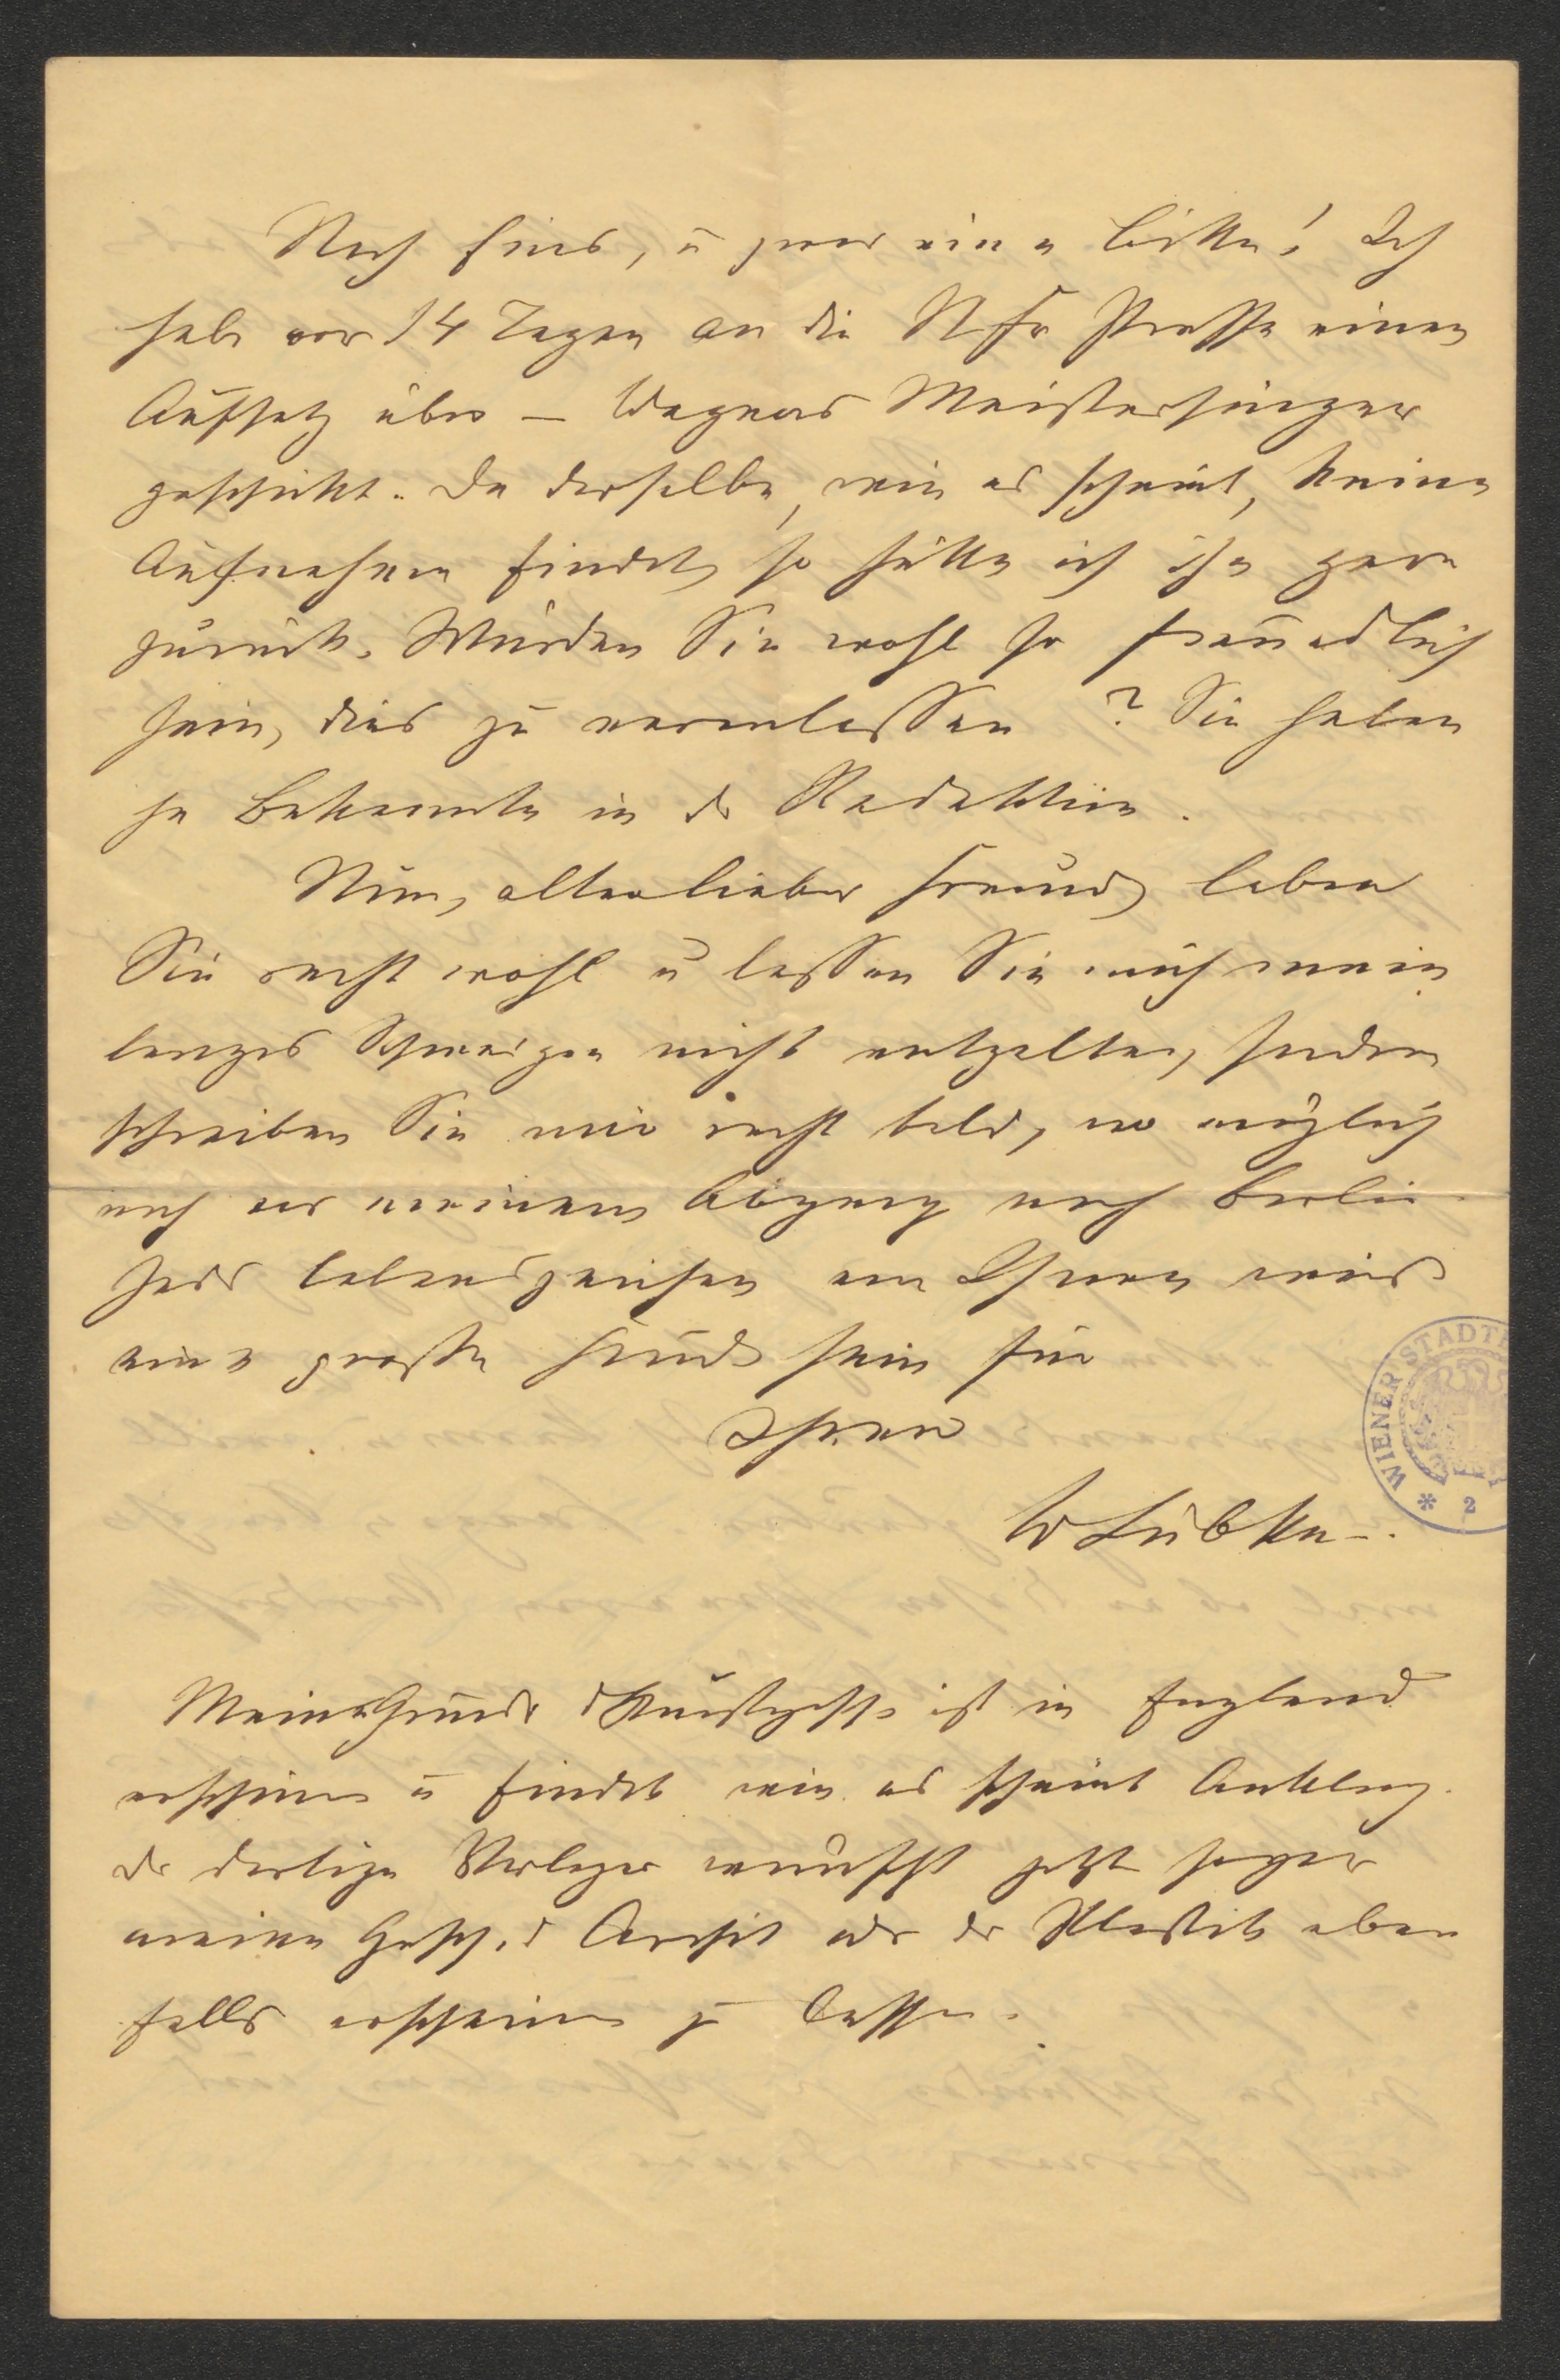 Noch Eins, u zwar eine Bitte! Ich
habe vor 14 Tagen an die N fr Presse einen
Aufsatz über – Wagners Meistersinger
geschickt. Da derselbe, wie es scheint, keine
Aufnahme findet, so hätte ich ihn gern
zurück. Würden Sie wohl so freundlich
sein, dies zu veranlassen? Sie haben
ja Bekannte in d Redaktion.
Nun, alter lieber Freund, leben
Sie recht wohl u lassen Sie mich mein
langes Schweigen nicht entgelten, sondern
schreiben Sie mir recht bald, wo möglich
noch vor meinem Abgang nach Berlin.
Jedes Lebenszeichen von Ihnen wird
eine große Freude sein für
Ihren
W Lübke.
WIENER STADT
2
Meine d Kunstgesch ist in England
erschienen u findet wie es scheint Anklang.
Der dortige Verleger wünscht jetzt sogar
meine Gesch. d Archit oder der Plastik eben
falls erscheinen zu lassen.